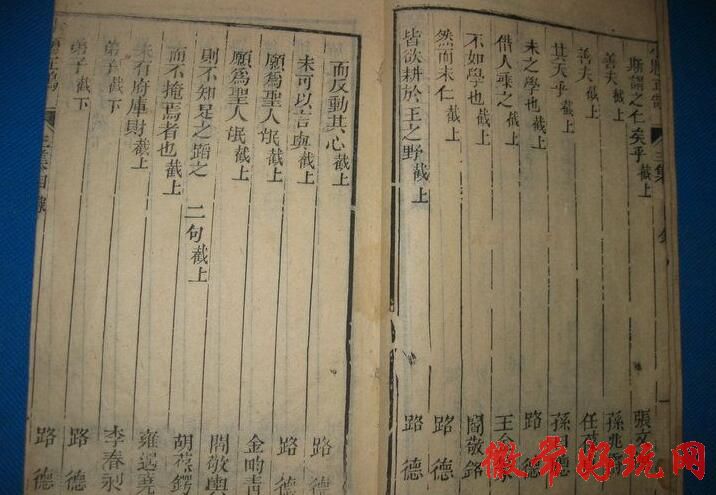 斯謂之仁矣乎 截上
善夫 截上 孫兆
善夫 截上 任
其天乎 截上 孫
未之學也 截上 路德
借人乘之 截上 王
不如學也 截上 閻敬銘
然而未仁 截上 路德
皆欲耕於王之野 截上 路德
而反動其心 截上 路德
未可以言與 截上 路德
願爲聖人氓 截上 金
願爲聖人氓 截上 閻敬輿
則不知足之蹈之 二句 截上 胡葆鍔
而不掩焉者也 截上 雍遇堯
未有府庫財 截上 李春
弟子 截下 路德
弟子 截下 路德
徽常好玩网